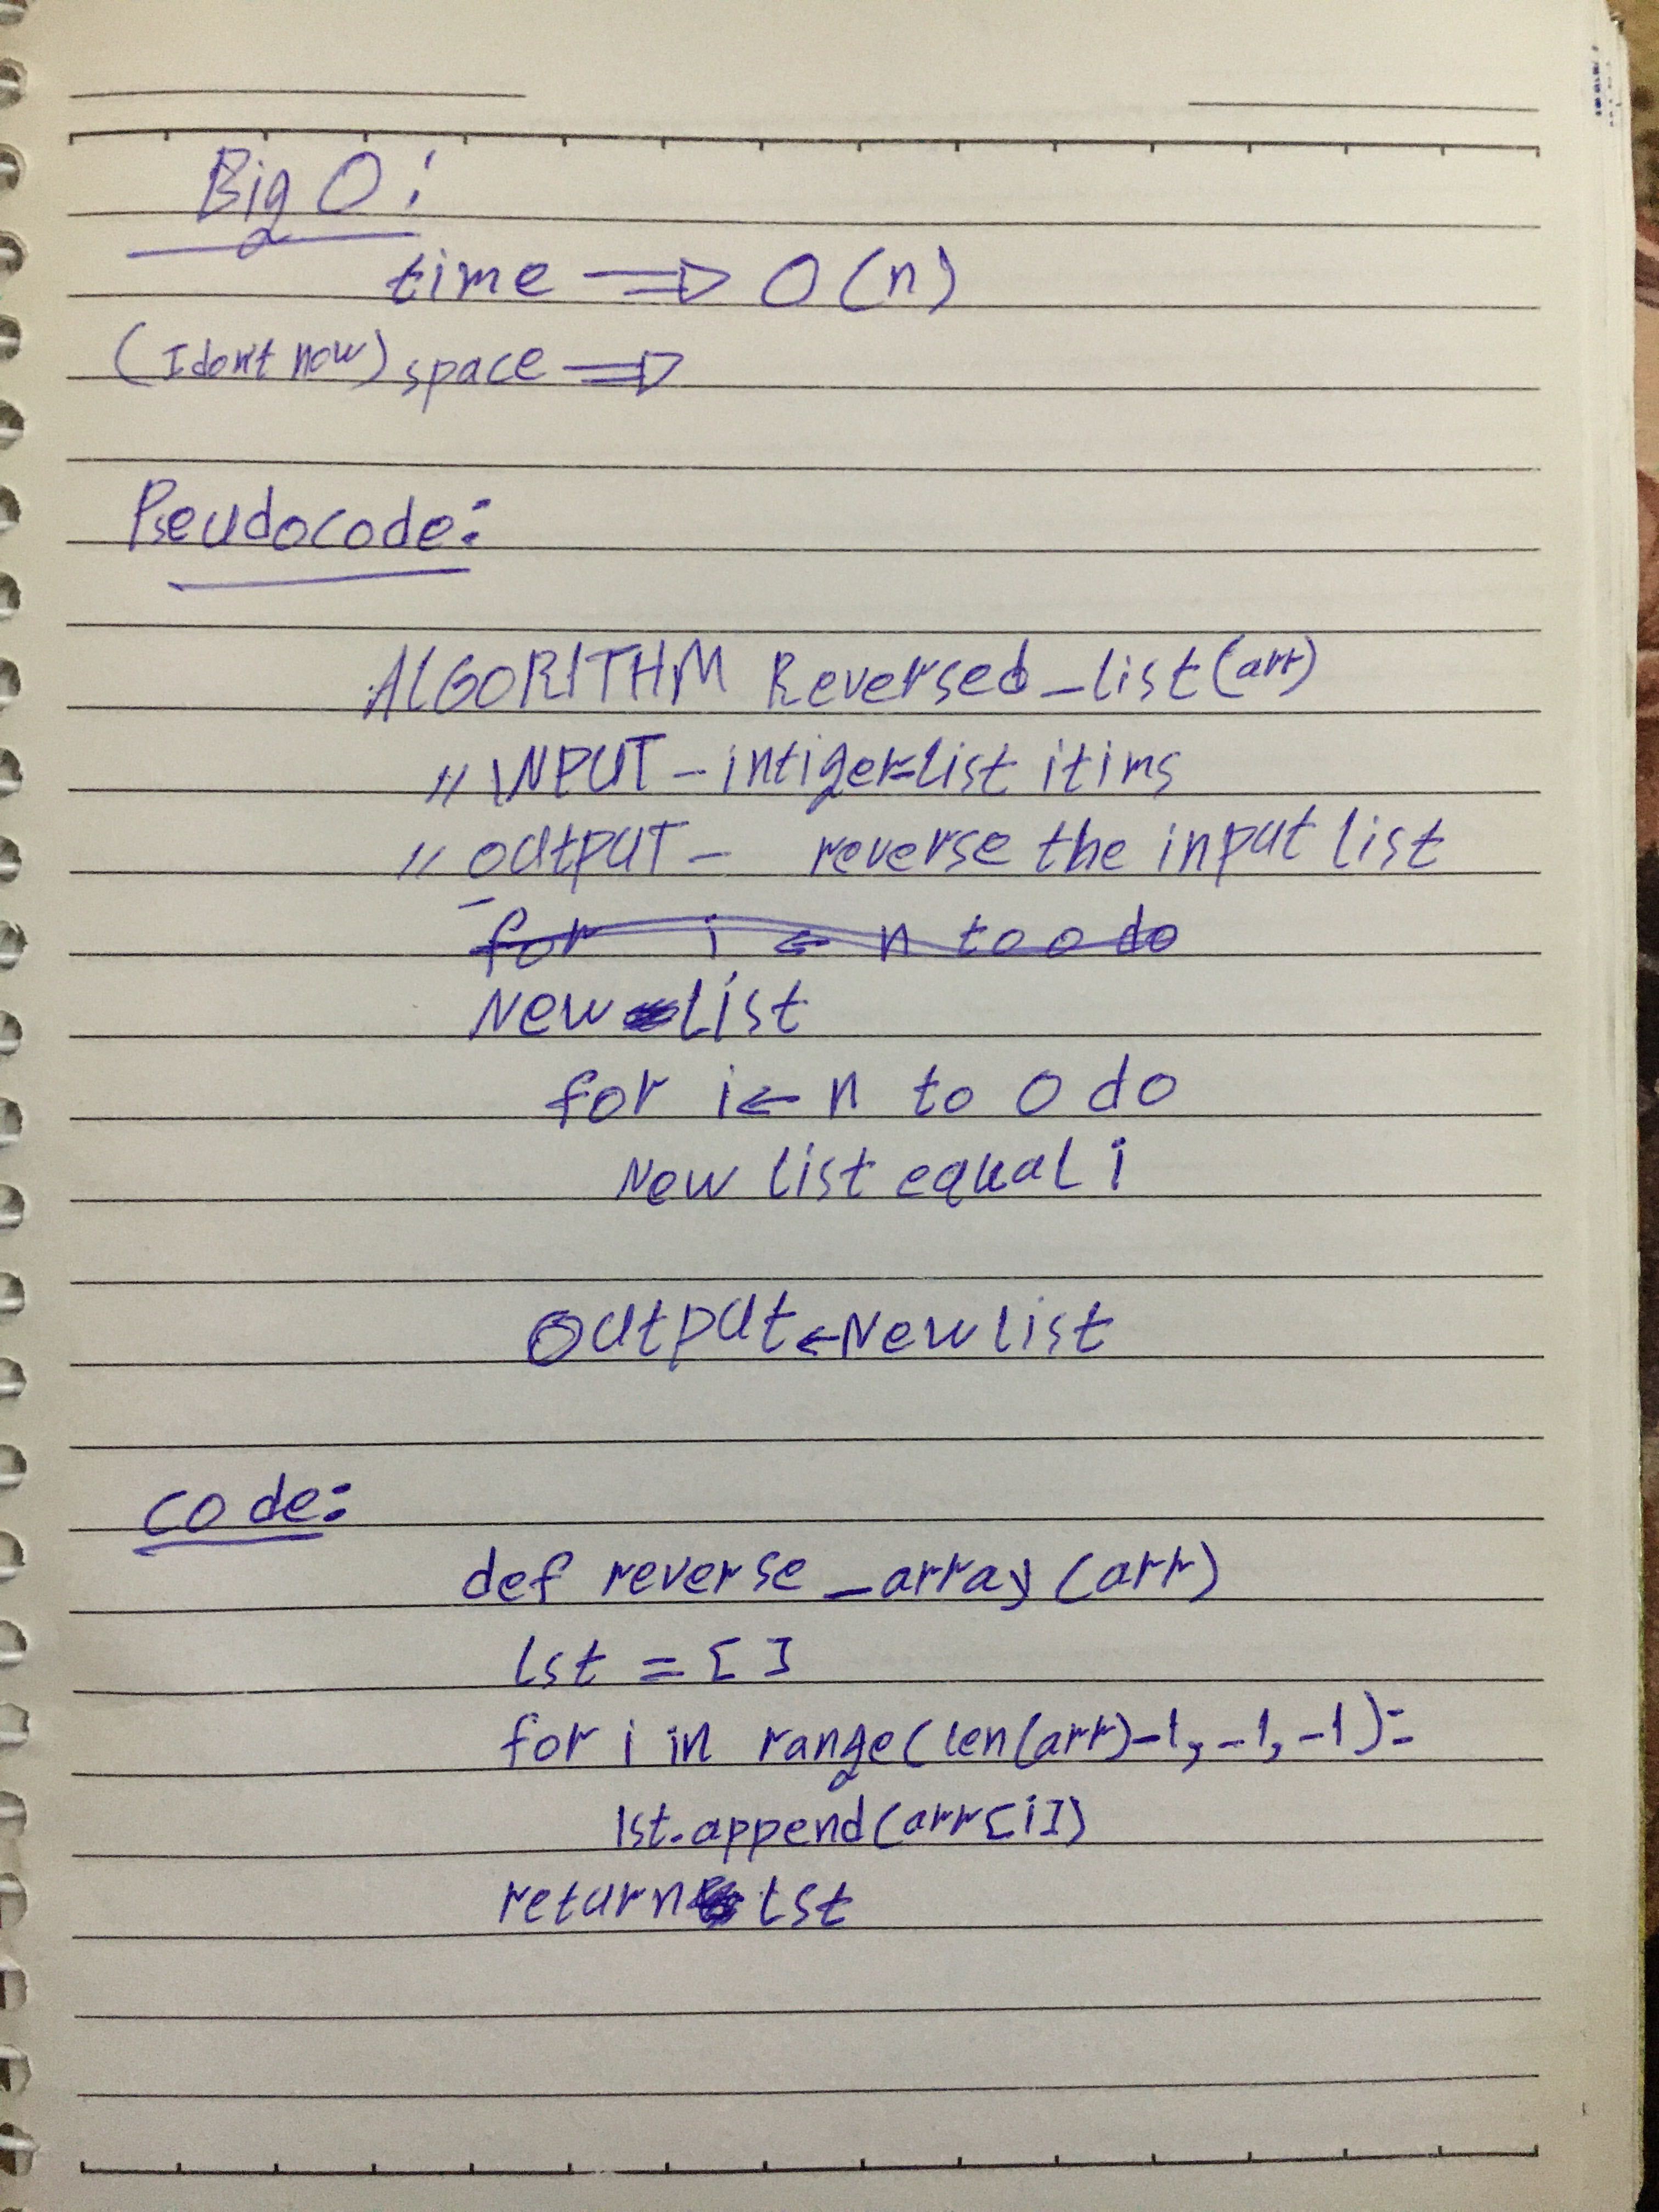 Big O:
time ⇒ O(n)
(I don't now) space ⇒
Pseudocode:
ALGORITHM Reversed_list(arr)
// INPUT - intiger-list itims
// OUtPUT - reverse the input list
for i ← n to 0 do
New List
for i ← n to 0 do
New list equal i
OUtPUt ← New list
code:
def reverse_array(arr)
lst = []
for i in range(len(arr)-1, -1, -1):
lst.append(arr[i])
return lst